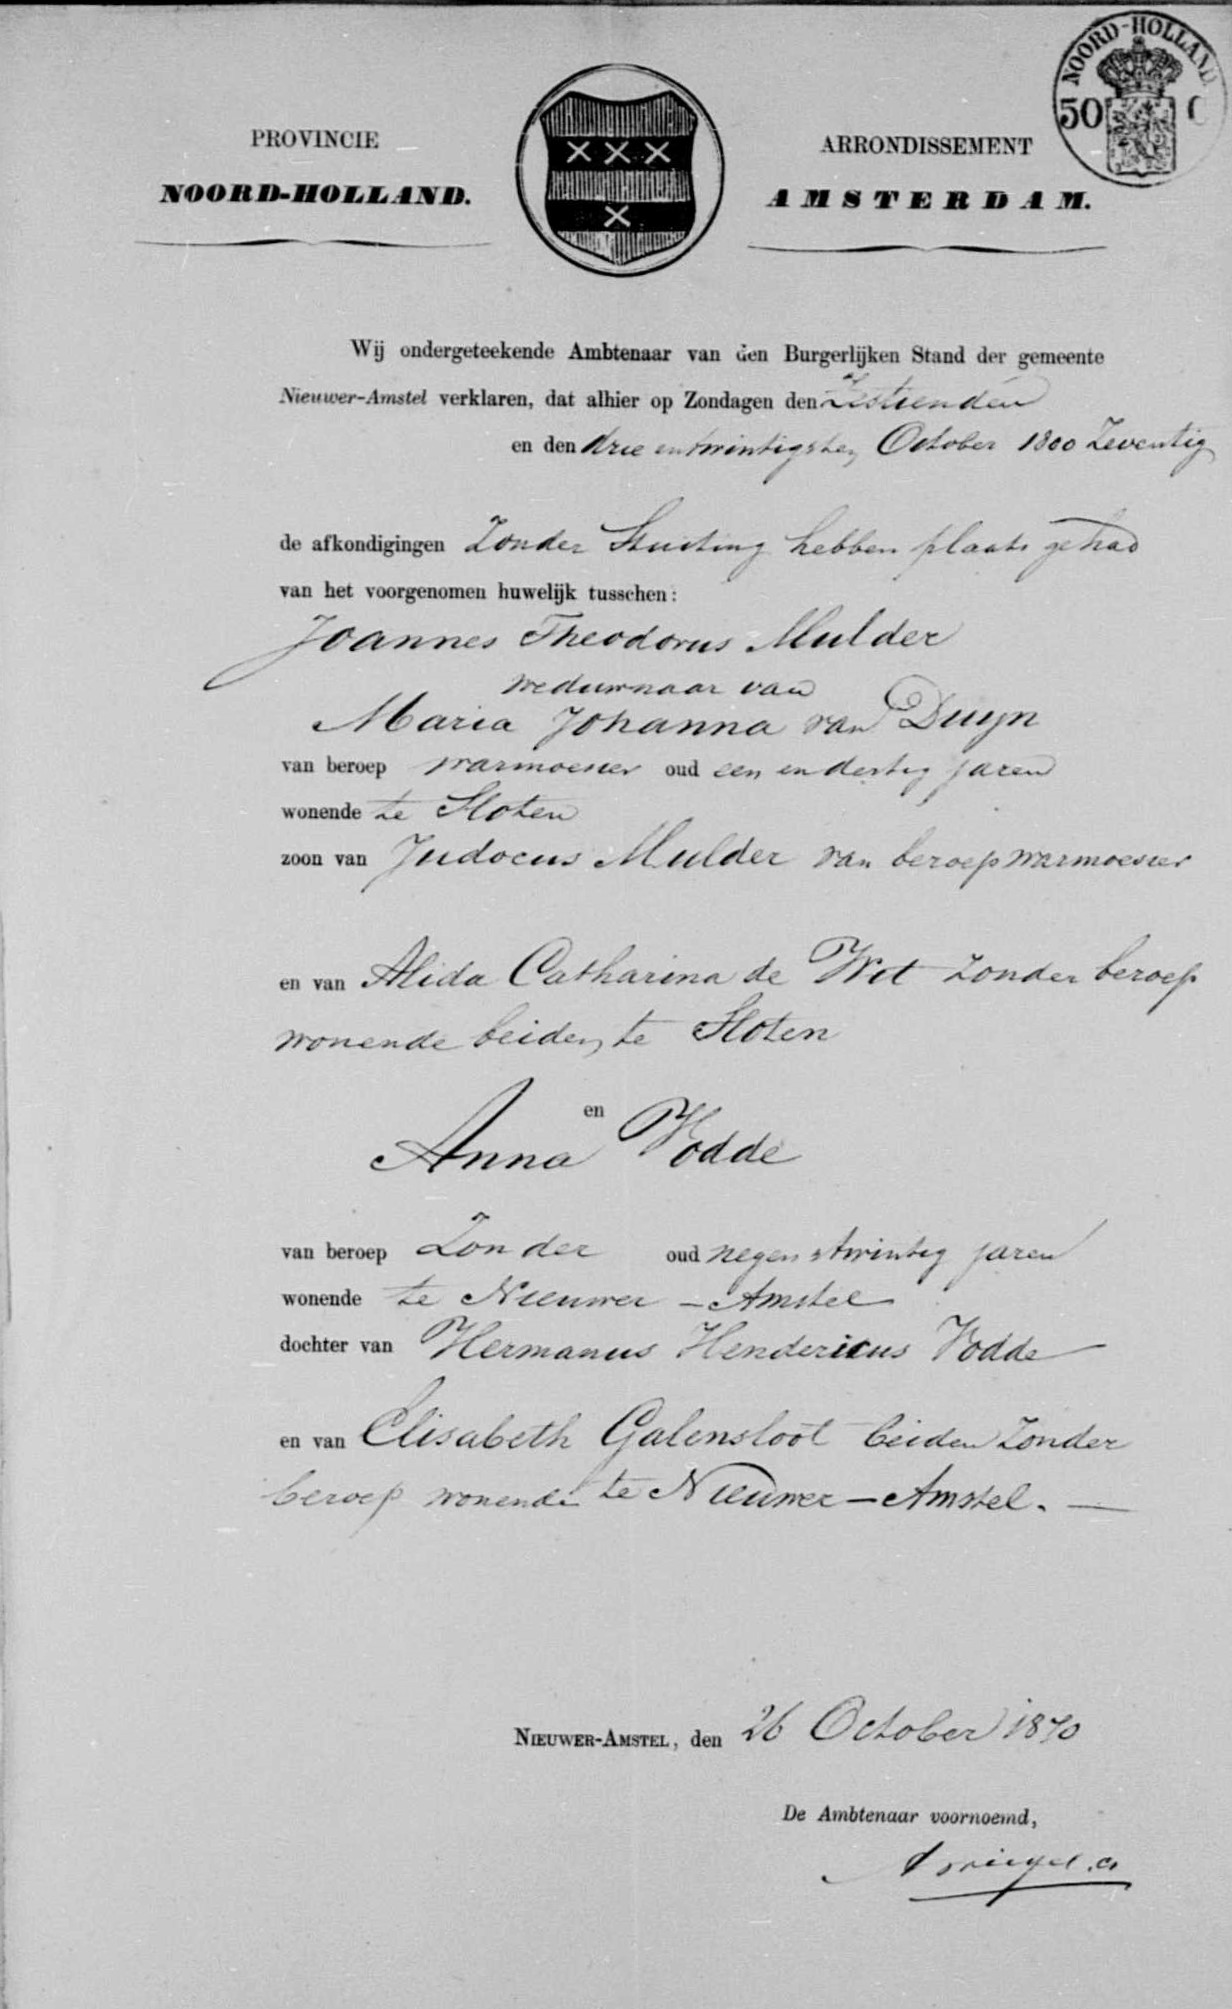 NOORD-HOLLAND
50 C
PROVINCIE
NOORD-HOLLAND.
ARRONDISSEMENT
AMSTERDAM.
Wij ondergeteekende Ambtenaar van den Burgerlijken Stand der gemeente
Nieuwer-Amstel verklaren, dat alhier op Zondagen den Zestienden
en den drie en twintigsten October 1800 Zeventig
de afkondigingen Zonder Stuiting hebben plaats gehad
van het voorgenomen huwelijk tusschen:
Joannes Theodorus Mulder
weduwnaar van
Maria Johanna van Duyn
van beroep warmoesier oud een en dertig jaren
wonende te Sloten
zoon van Judocus Mulder van beroep warmoesier
en van Alida Catharina de Wit zonder beroep
wonende beiden te Sloten
en
Anna Vodde
van beroep Zonder oud negen &twintig jaren
wonende te Nieuwer-Amstel
dochter van Hermanus Hendericus Vodde
en van Elisabeth Galensloot beiden Zonder
beroep wonende te Nieuwer-Amstel.
Nieuwer-Amstel, den 26 October 1870
De Ambtenaar voornoemd,